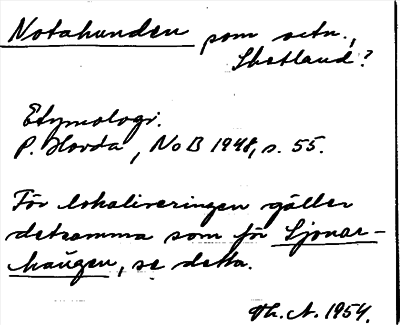 Notahunden som ortn.,
Shetland?
Etymologi.
P. Hovda, NoB 1948, s. 55.
För lokaliseringen gäller
detsamma som för Sjonar-
haugen, se detta.
Th. A. 1954.